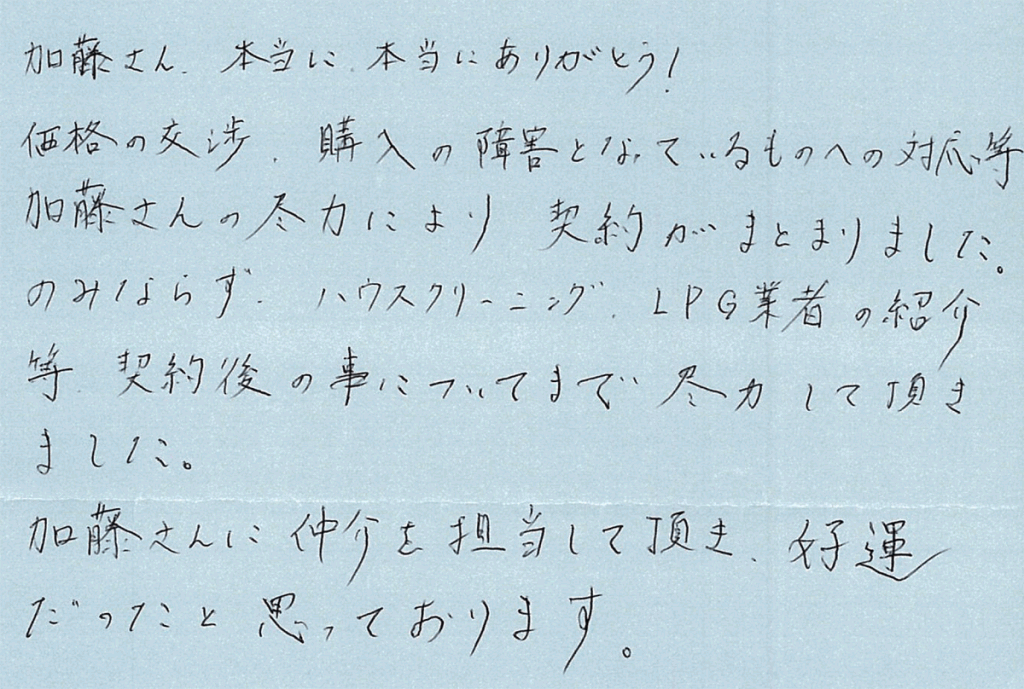 加藤さん、本当に、本当にありがとう!
価格の交渉、購入の障害となっているものへの対応等
加藤さんの尽力により 契約がまとまりました。
のみならず、ハウスクリーニング、LPG業者の紹介
等、契約後の事についてまで 尽力して頂き
ました。
加藤さんに仲介を担当して頂き、好運
だったこと思っております。